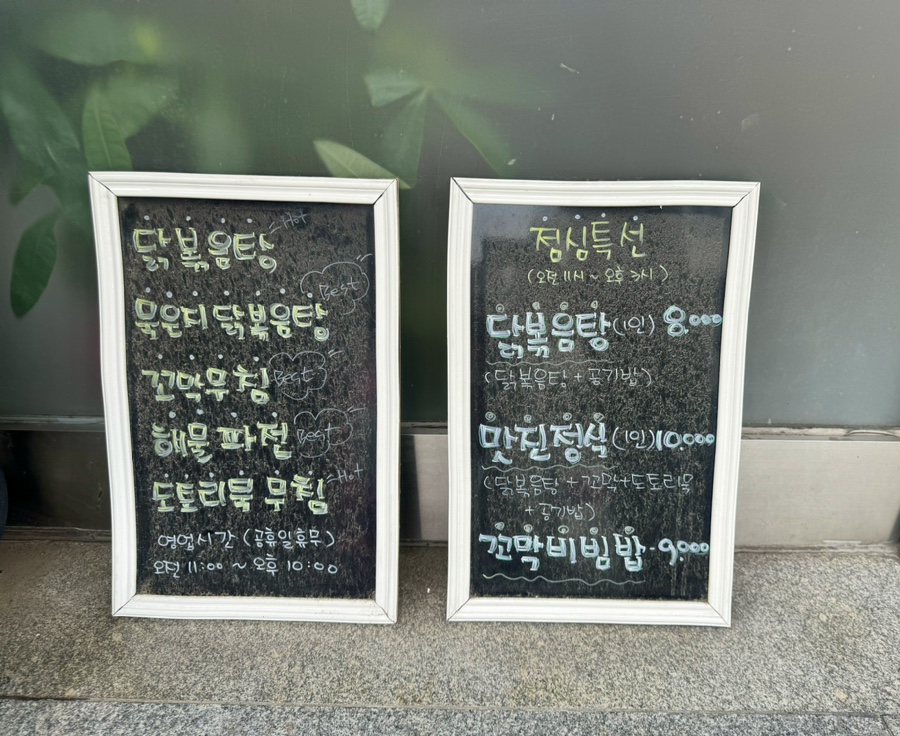 닭볶음탕 Hot
묵은지 닭볶음탕 Best
꼬막무침 Best
해물 파전 Best
도토리묵 무침 Hot
영업시간 (공휴일휴무)
오전 11:00 ~ 오후 10:00
점심특선
(오전 11시 ~ 오후 3시)
닭볶음탕 (1인) 8.000
(닭볶음탕 + 공기밥)
맛진정식 (1인) 10.000
(닭볶음탕 + 꼬막+도토리묵
+ 공기밥)
꼬막비빔밥 - 9.000